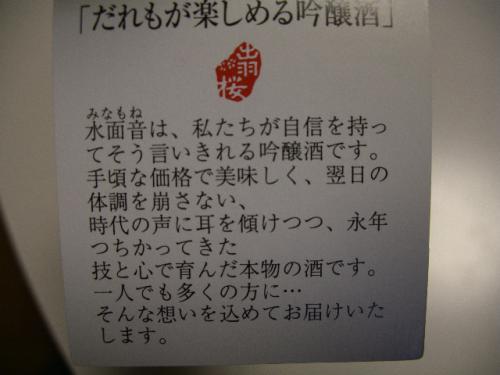 「だれもが楽しめる吟醸酒」
出羽桜
みなもね
水面音は、私たちが自信を持っ
てそう言いきれる吟醸酒です。
手頃な価格で美味しく、翌日の
体調を崩さない、
時代の声に耳を傾けつつ、永年
つちかってきた
技と心で育んだ本物の酒です。
一人でも多くの方に…
そんな想いを込めてお届けいた
します。